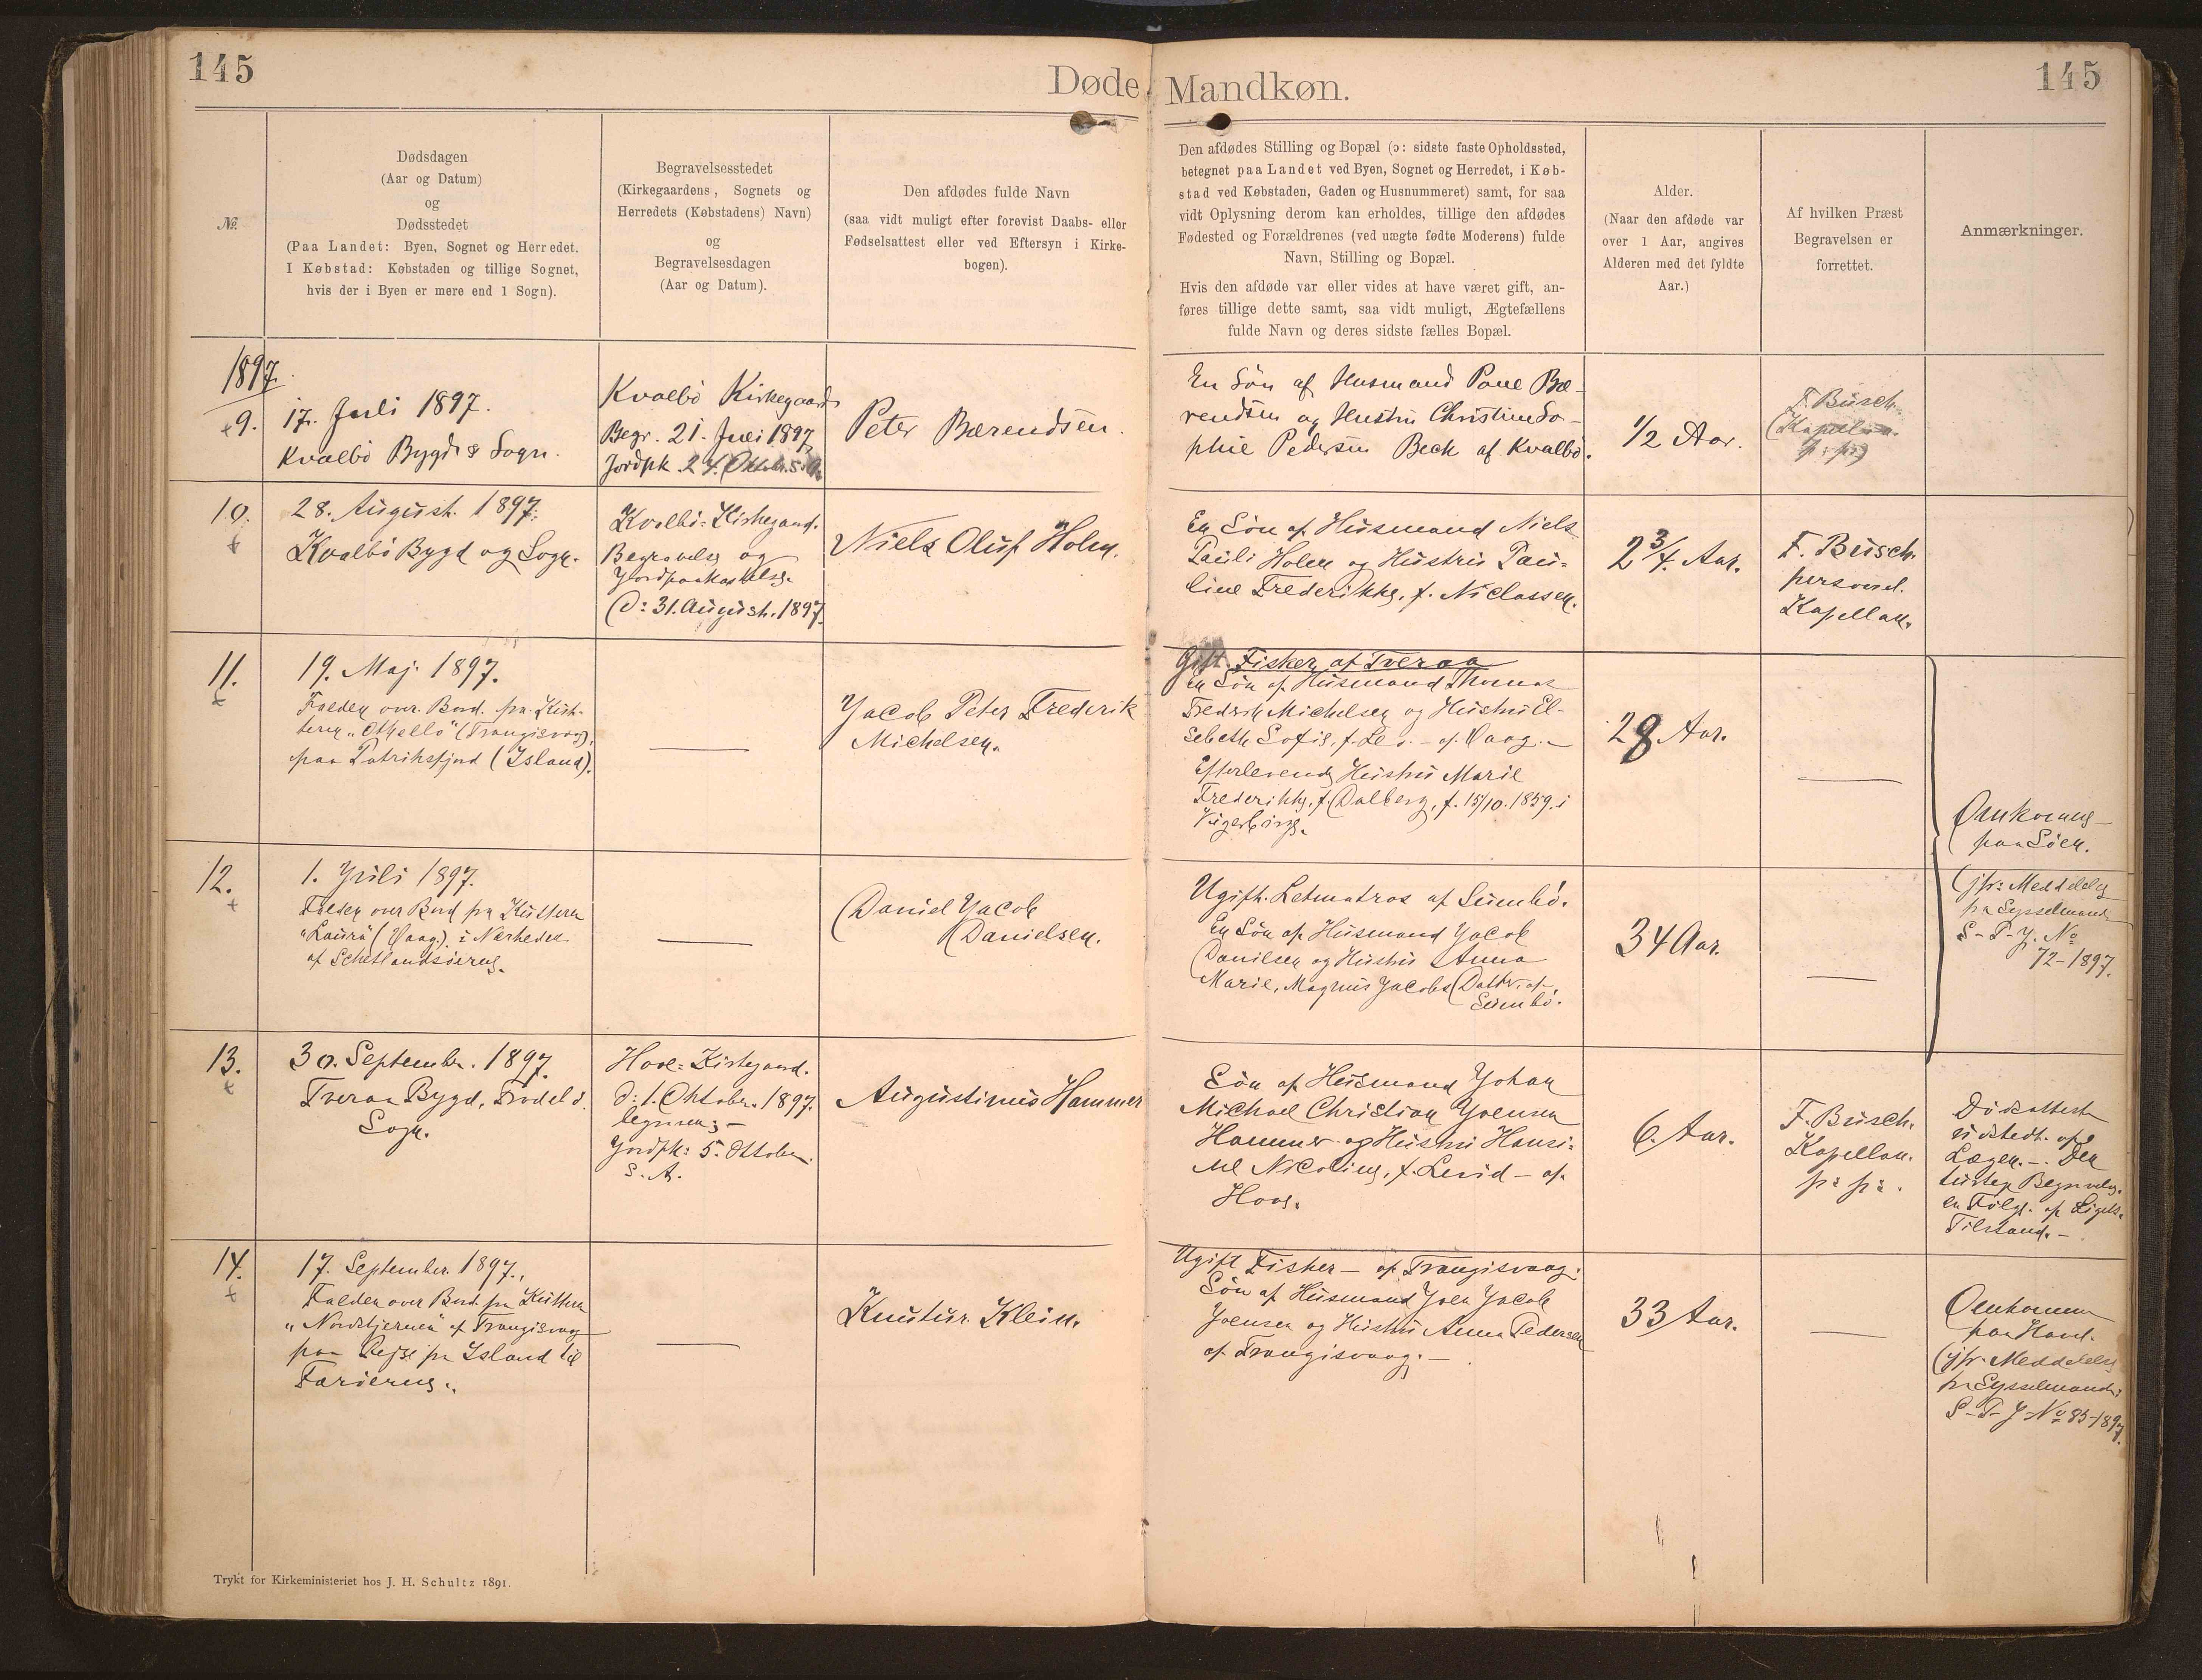 145
Døde Mandkøn.
145
№.
Dødsdagen
(Aar og Datum)
og
Dødsstedet
(Paa Landet: Byen, Sognet og Herredet.
I Købstad: Købstaden og tillige Sognet,
hvis der i Byen er mere end 1 Sogn).
Begravelsesstedet
(Kirkegaardens, Sognets og
Herredets (Købstadens) Navn)
og
Begravelsesdagen
(Aar og Datum).
Den afdødes fulde Navn
(saa vidt muligt efter forevist Daabs- eller
Fødselsattest eller ved Eftersyn i Kirke-
bogen).
Den afdødes Stilling og Bopæl (ɔ: sidste faste Opholdssted,
betegnet paa Landet ved Byen, Sognet og Herredet, i Køb-
stad ved Købstaden, Gaden og Husnummeret) samt, for saa
vidt Oplysning derom kan erholdes, tillige den afdødes
Fødested og Forældrenes (ved uægte fødte Moderens) fulde
Navn, Stilling og Bopæl.
Hvis den afdøde var eller vides at have været gift, an-
føres tillige dette samt, saa vidt muligt, Ægtefællens
fulde Navn og deres sidste fælles Bopæl.
Alder.
(Naar den afdøde var
over 1 Aar, angives
Alderen med det fyldte
Aar.)
Af hvilken Præst
Begravelsen er
forrettet.
Anmærkninger.
1897.
9.
17. Juli 1897.
Kvalbö Bygd & Sogn.
Kvalbö Kirkegaard
Begr. 21. Juli 1897
Jordpk. 24. Oktob. s. A.
Peter Bærendsen.
En Sön af Husmand Poul Bæ-
rendsen og Hustru Christine So-
phie Pedersen Beck af Kvalbö.
1/2 Aar.
F. Busch.
(Kapellan
p. p.)
10.
28. August. 1897.
Kvalbö Bygd og Sogn.
Kvalbö: Kirkegaard.
Begravelse og
Jordpaakastelse.
D: 31. August. 1897.
Niels Oluf Holm.
En Sön af Husmand Niels
Pauli Holm og Hustru Pau-
line Frederikke, f. Niclassen.
2 3/4. Aar.
F. Busch.
personel.
Kapellan.
11.
19. Maj. 1897.
Falden over Bord. fra Kut-
teren "Othello" (Trangisvaag),
paa Patriksfjord (Island).
Jacob Peter Frederik
Michelsen.
Gift. Fisker af Tveraa
En Sön af Husmand Thomas
Fredrik Michelsen og Hustru El-
sebeth Sofie, f. - af Vaag. -
Efterlevende Hustru Marie
Frederikke, f. Dalberg, f. 15/10. 1859. i
28 Aar.
Omkomne
paa Söen.
(jfr: Meddelelse
fra Sysselmand
S-P-J. №
72-1897.
12.
1. Juli 1897.
Falden over Bord fra Kutteren
"Laura" (Vaag). i Nærheden
af Schetlandsöerne.
Daniel Jacob
Danielsen.
Ugift. Letmatros af Sumbö.
En Sön af Husmand Jacob
Danilsen og Hustru Anna
Marie, Magnus Jacobs Datter, af
Sumbö.
34 Aar.
13.
30. September. 1897.
Tveraa Bygd, Frodebö
Sogn.
Hove: Kirkegaard.
D: 1. Oktober. 1897.
begraven; -
Jordpk: 5. Oktober
s. A.
Augustinus Hammer
Sön af Husmand Johan
Michael Christian Joensen
Hammer og Hustru Hansi-
ne Nicoline, f. Levid - af
Hove.
6. Aar.
F. Busch.
Kapellan.
p: p: .
Dödsattest
udstedt af
Lægen. -. Den
hurtige Begravelse
en Fölge af Ligets
Tilstand. -
14.
17. September. 1897.,
Falden over Bord fra Kutteren
"Nordstjernen" af Trangisvaag
paa Rejse fra Island til
Færöerne.
Knutur Klein.
Ugift Fisker - af Trangisvaag.
Sön af Husmand Joen Jacob
Joensen og Hustru Anna Pedersen
af Trangisvaag. -
33 Aar.
Omkommen
paa Havet.
(jfr. Meddelelse
fra Sysselmand:
S-P-J-№ 85-1897.
Trykt for Kirkeministeriet hos J. H. Schultz 1891.